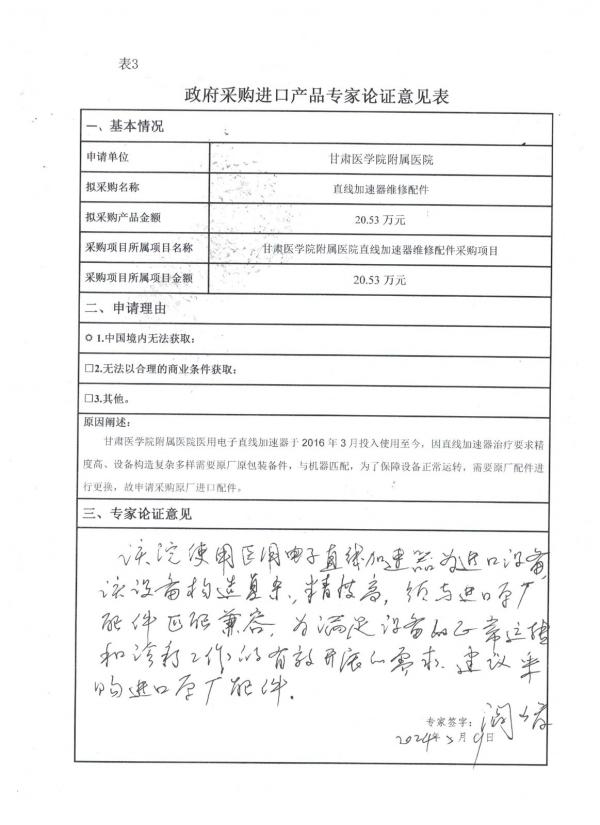 表3
政府采购进口产品专家论证意见表
一、基本情况
申请单位 甘肃医学院附属医院
拟采购名称 直线加速器维修配件
拟采购产品金额 20.53 万元
采购项目所属项目名称 甘肃医学院附属医院直线加速器维修配件采购项目
采购项目所属项目金额 20.53 万元
二、申请理由
1.中国境内无法获取:
□2.无法以合理的商业条件获取:
□3.其他。
原因阐述:
甘肃医学院附属医院医用电子直线加速器于 2016 年 3 月投入使用至今,因直线加速器治疗要求精
度高、设备构造复杂多样需要原厂原包装备件,与机器匹配,为了保障设备正常运转,需要原厂配件进
行更换,故申请采购原厂进口配件。
三、专家论证意见
该院使用医用电子直线加速器为进口设备,
该设备构造复杂,精度高,须与进口原厂
配件匹配兼容,为满足设备的正常运转
和诊疗工作的有效开展的需求,建议采
购进口原厂配件。
专家签字:
2024年 月 9日